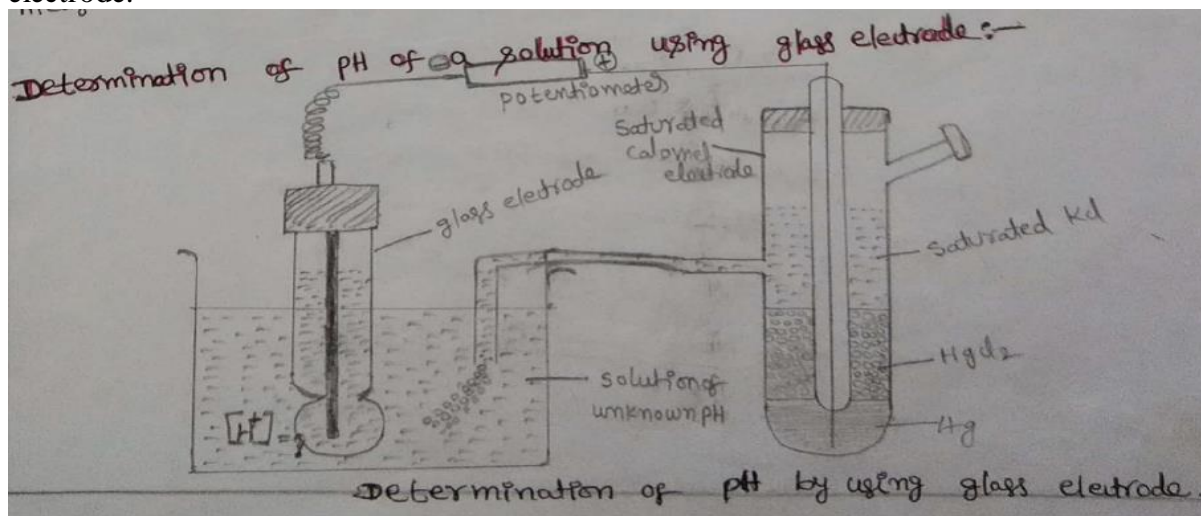 electrode.
Determination of pH of a solution using glass electrode:-
⊖ ⊕
potentiometer
saturated
calomel
electrode
glass electrode
saturated Kcl
Hgcl2
solution of
unknown pH
Hg
[H+] = ?
Determination of pH by using glass electrode.